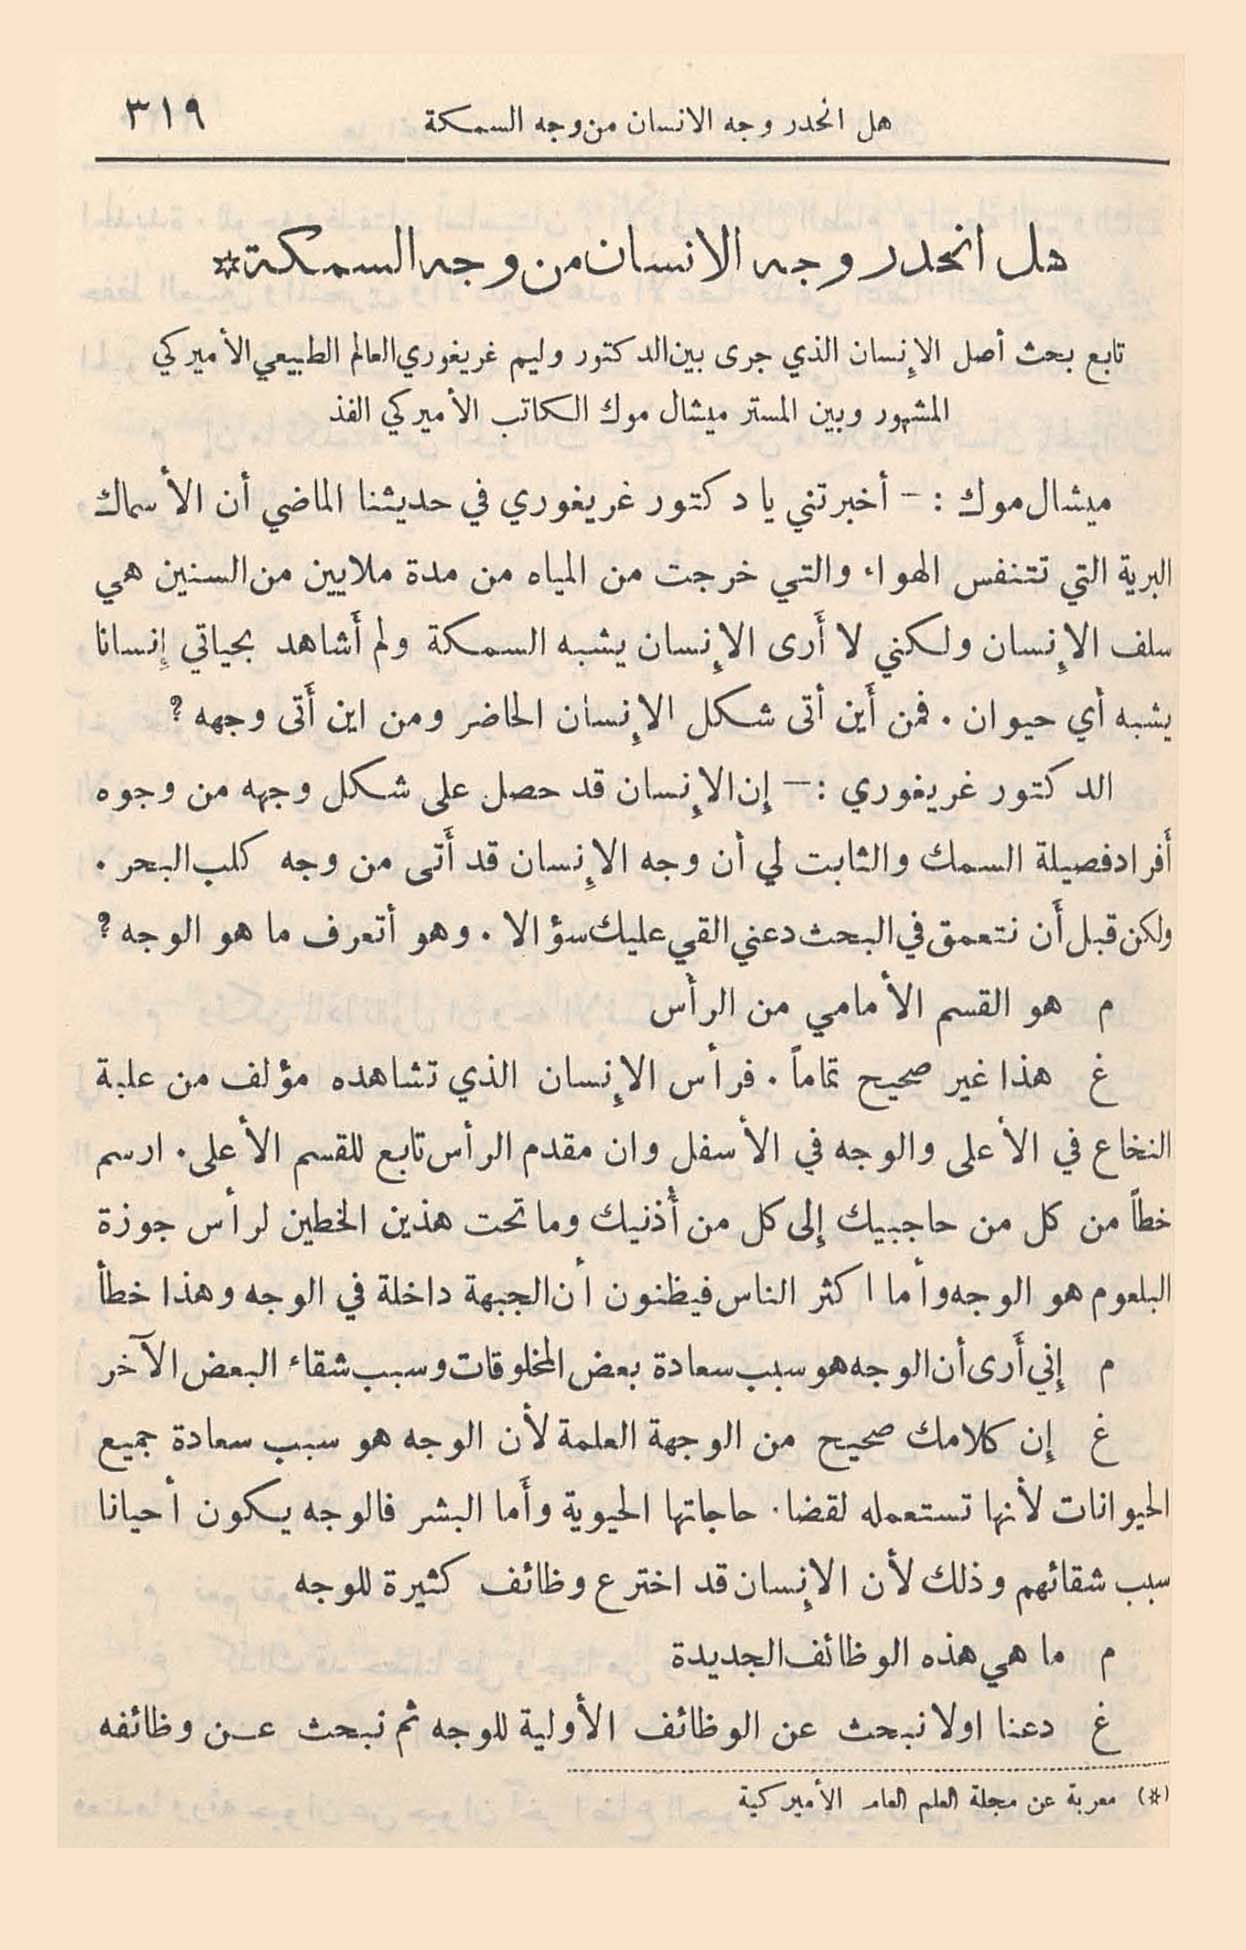 هل انحدر وجه الانسان من وجه السمكة ٣١٩
هل انحدر وجه الانسان من وجه السمكة*
تابع بحث أصل الإنسان الذي جرى بين الدكتور وليم غريغوري العالم الطبيعي الأميركي
المشهور وبين المستر ميشال موك الكاتب الأميركي الفذ
ميشال موك : — أخبرتني يا دكتور غريغوري في حديثنا الماضي أن الأسماك
البرية التي تتنفس الهواء والتي خرجت من المياه من مدة ملايين من السنين هي
سلف الإنسان ولكني لا أَرى الإنسان يشبه السمكة ولم أَشاهد بحياتي إِنسانا
يشبه أي حيوان . فمن أَين أتى شكل الإنسان الحاضر ومن اين أَتى وجهه ?
الدكتور غريغوري : — إِن الإنسان قد حصل على شكل وجهه من وجوه
أَفراد فصيلة السمك والثابت لي أن وجه الإنسان قد أَتى من وجه كلب البحر .
ولكن قبل أَن نتعمق في البحث دعني القي عليك سؤالا . وهو أتعرف ما هو الوجه ?
م هو القسم الأمامي من الرأس
غ هذا غير صحيح تماماً . فرأس الإنسان الذي تشاهده مؤلف من علبة
النخاع في الأعلى والوجه في الأسفل وان مقدم الرأس تابع للقسم الأعلى . ارسم
خطاً من كل من حاجبيك إِلى كل من أُذنيك وما تحت هذين الخطين لرأس جوزة
البلعوم هو الوجه وأما اكثر الناس فيظنون أن الجبهة داخلة في الوجه وهذا خطأ
م إِني أَرى أن الوجه هو سبب سعادة بعض المخلوقات وسبب شقاء البعض الآخر
غ إِن كلامك صحيح من الوجهة العلمة لأن الوجه هو سبب سعادة جميع
الحيوانات لأنها تستعمله لقضاء حاجاتها الحيوية وأَما البشر فالوجه يكون أحيانا
سبب شقائهم وذلك لأن الإنسان قد اخترع وظائف كثيرة للوجه
م ما هي هذه الوظائف الجديدة
غ دعنا اولا نبحث عن الوظائف الأولية للوجه ثم نبحث عن وظائفه
(*) معربة عن مجلة العلم العام الأميركية